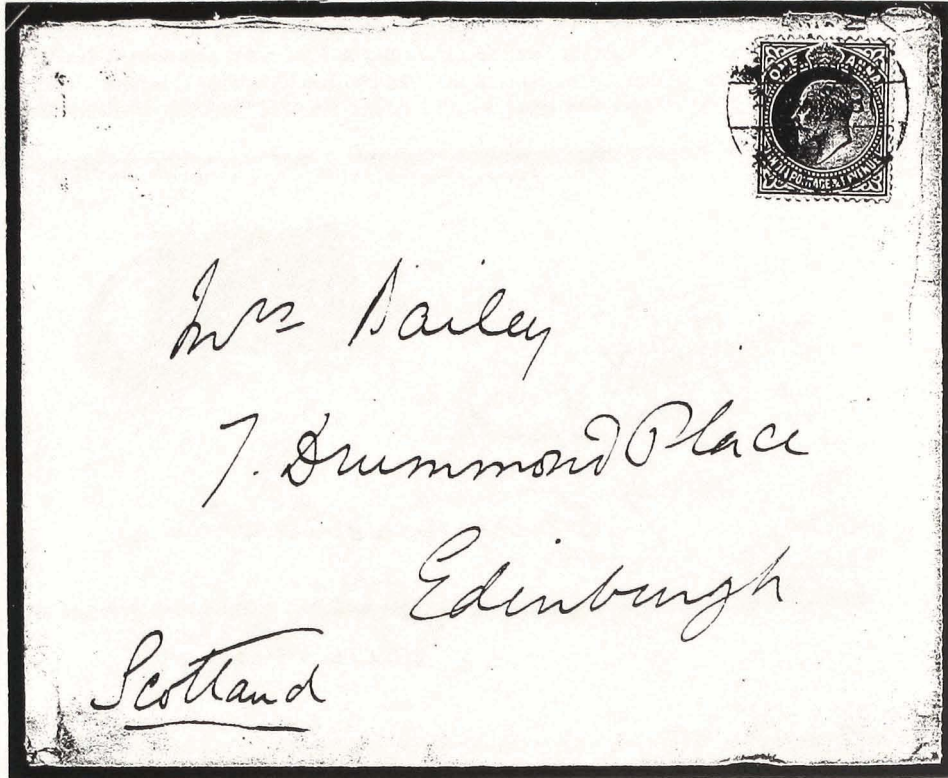 ONE ANNA
INDIA POSTAGE & REVENUE
Mrs Bailey
7. Drummond Place
Edinburgh
Scotland